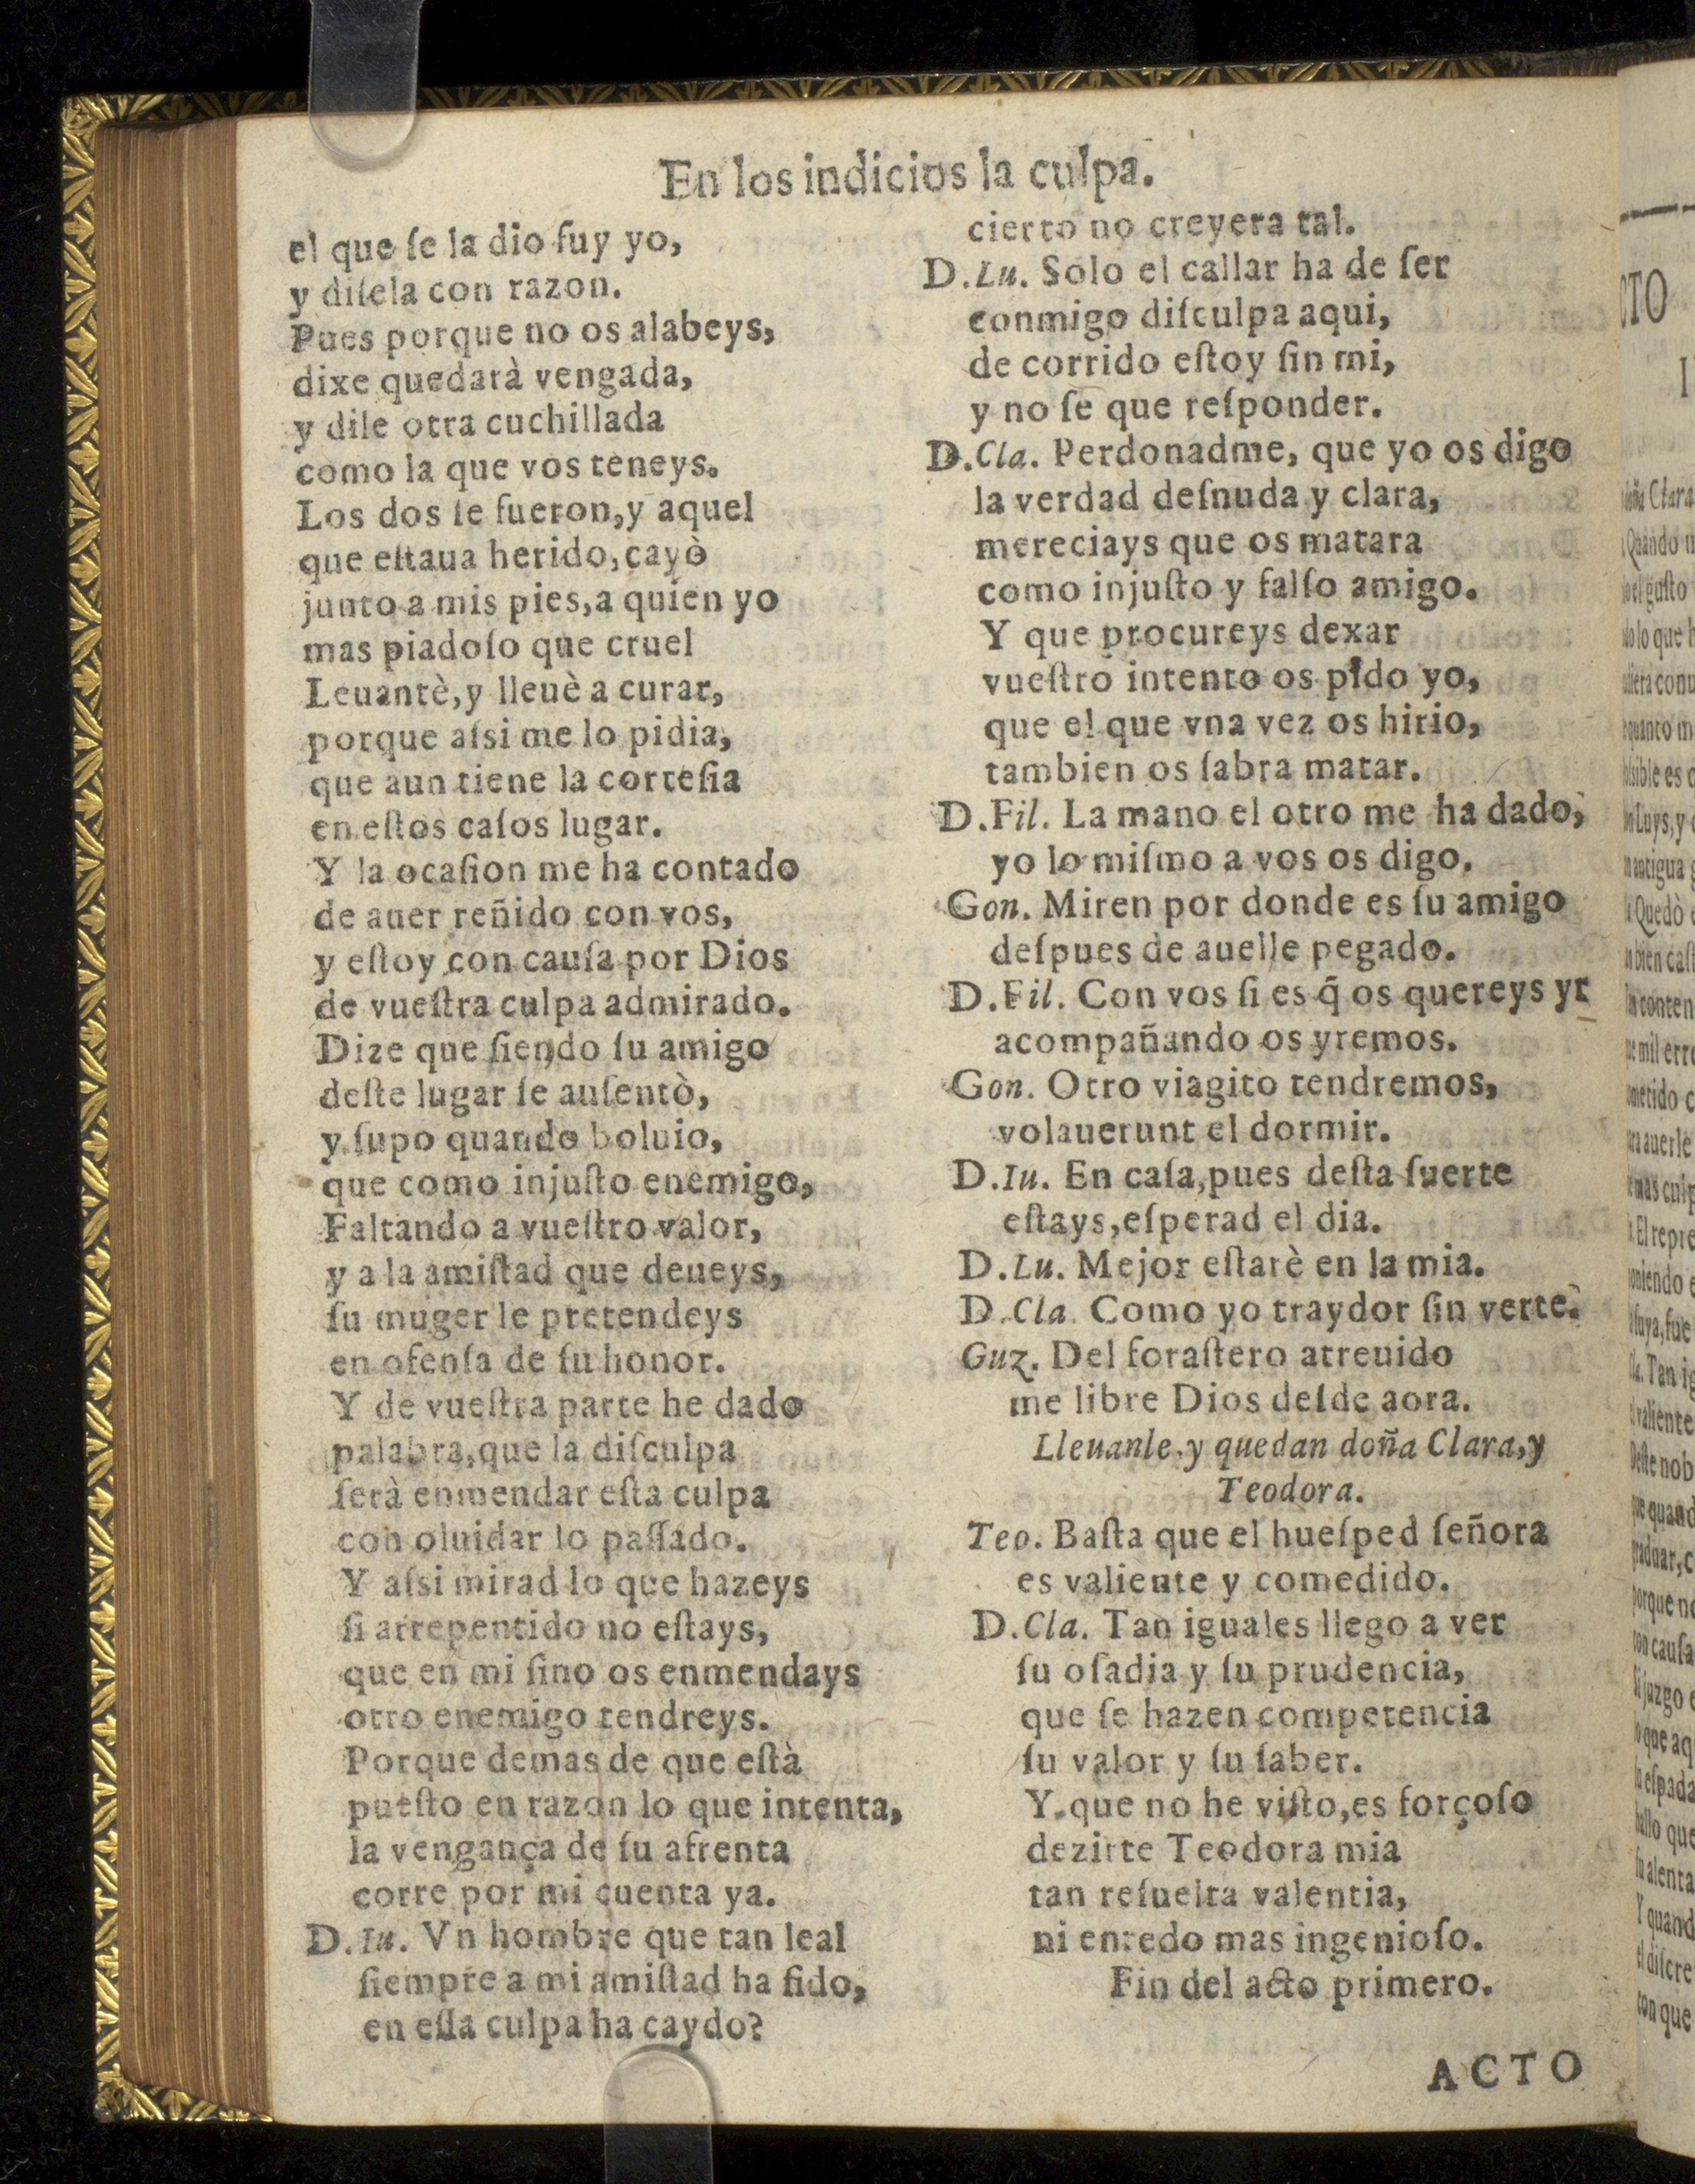 En los indicios la culpa.
el que ſe la dio fuy yo,
y diſela con razon.
Pues porque no os alabeys,
dixe quedarà vengada,
y dile otra cuchillada
como la que vos teneys.
Los dos ſe fueron, y aquel
que eſtaua herido, cayò
junto a mis pies, a quien yo
mas piadoſo que cruel
Leuantè, y lleuè a curar,
porque aſsi me lo pidia,
que aun tiene la corteſia
en eſtos caſos lugar.
Y la ocaſion me ha contado
de auer reñido con vos,
y eſtoy con cauſa por Dios
de vueſtra culpa admirado.
Dize que ſiendo ſu amigo
deſte lugar ſe auſentò,
y ſupo quando boluio,
que como injuſto enemigo,
Faltando a vueſtro valor,
y a la amiſtad que deueys,
ſu muger le pretendeys
en ofenſa de ſu honor.
Y de vueſtra parte he dado
palabra, que la diſculpa
ſerà enmendar eſta culpa
con oluidar lo paſſado.
Y aſsi mirad lo que hazeys
ſi arrepentido no eſtays,
que en mi ſino os enmendays
otro enemigo tendreys.
Porque demas de que eſtà
pueſto en razon lo que intenta,
la vengança de ſu afrenta
corre por mi cuenta ya.
D.Iu. Vn hombre que tan leal
ſiempre a mi amiſtad ha ſido,
en eſſa culpa ha caydo?
cierto no creyera tal.
D.Lu. Solo el callar ha de ſer
conmigo diſculpa aqui,
de corrido eſtoy ſin mi,
y no ſe que reſponder.
D.Cla. Perdonadme, que yo os digo
la verdad deſnuda y clara,
mereciays que os matara
como injuſto y falſo amigo.
Y que procureys dexar
vueſtro intento os pido yo,
que el que vna vez os hirio,
tambien os ſabra matar.
D.Fil. La mano el otro me ha dado,
yo lo miſmo a vos os digo.
Gon. Miren por donde es ſu amigo
deſpues de auelle pegado.
D.Fil. Con vos ſi es q̃ os quereys yr
acompañando os yremos.
Gon. Otro viagito tendremos,
volauerunt el dormir.
D.Iu. En caſa, pues deſta ſuerte
eſtays, eſperad el dia.
D.Lu. Mejor eſtarè en la mia.
D.Cla. Como yo traydor ſin verte.
Guz. Del foraſtero atreuido
me libre Dios deſde aora.
Lleuanle, y quedan doña Clara, y
Teodora.
Teo. Baſta que el hueſped ſeñora
es valiente y comedido.
D.Cla. Tan iguales llego a ver
ſu oſadia y ſu prudencia,
que ſe hazen competencia
ſu valor y ſu ſaber.
Y que no he viſto, es forçoſo
dezirte Teodora mia
tan reſuelta valentia,
ni enredo mas ingenioſo.
Fin del acto primero.
ACTO